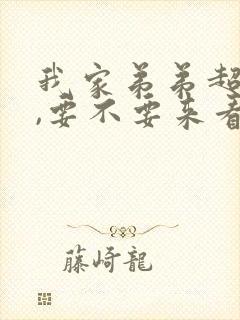 我家弟弟超
,要不要来看
藤崎龍